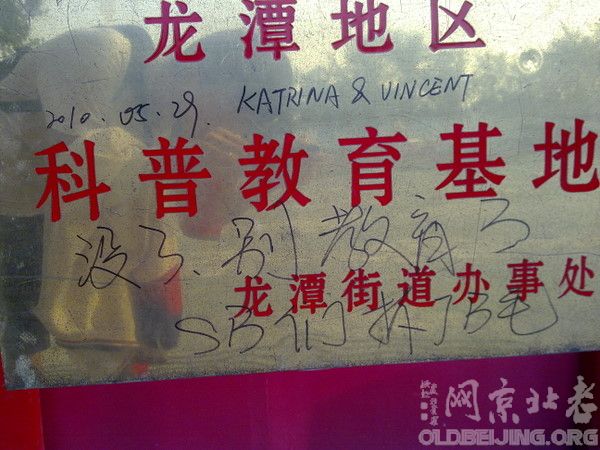 龙潭地区
2010.05.29. KATRINA & VINCENT
科普教育基地
没了、别教育了
龙潭街道办事处
SB们拆
老北京网
OLDBEIJING.ORG